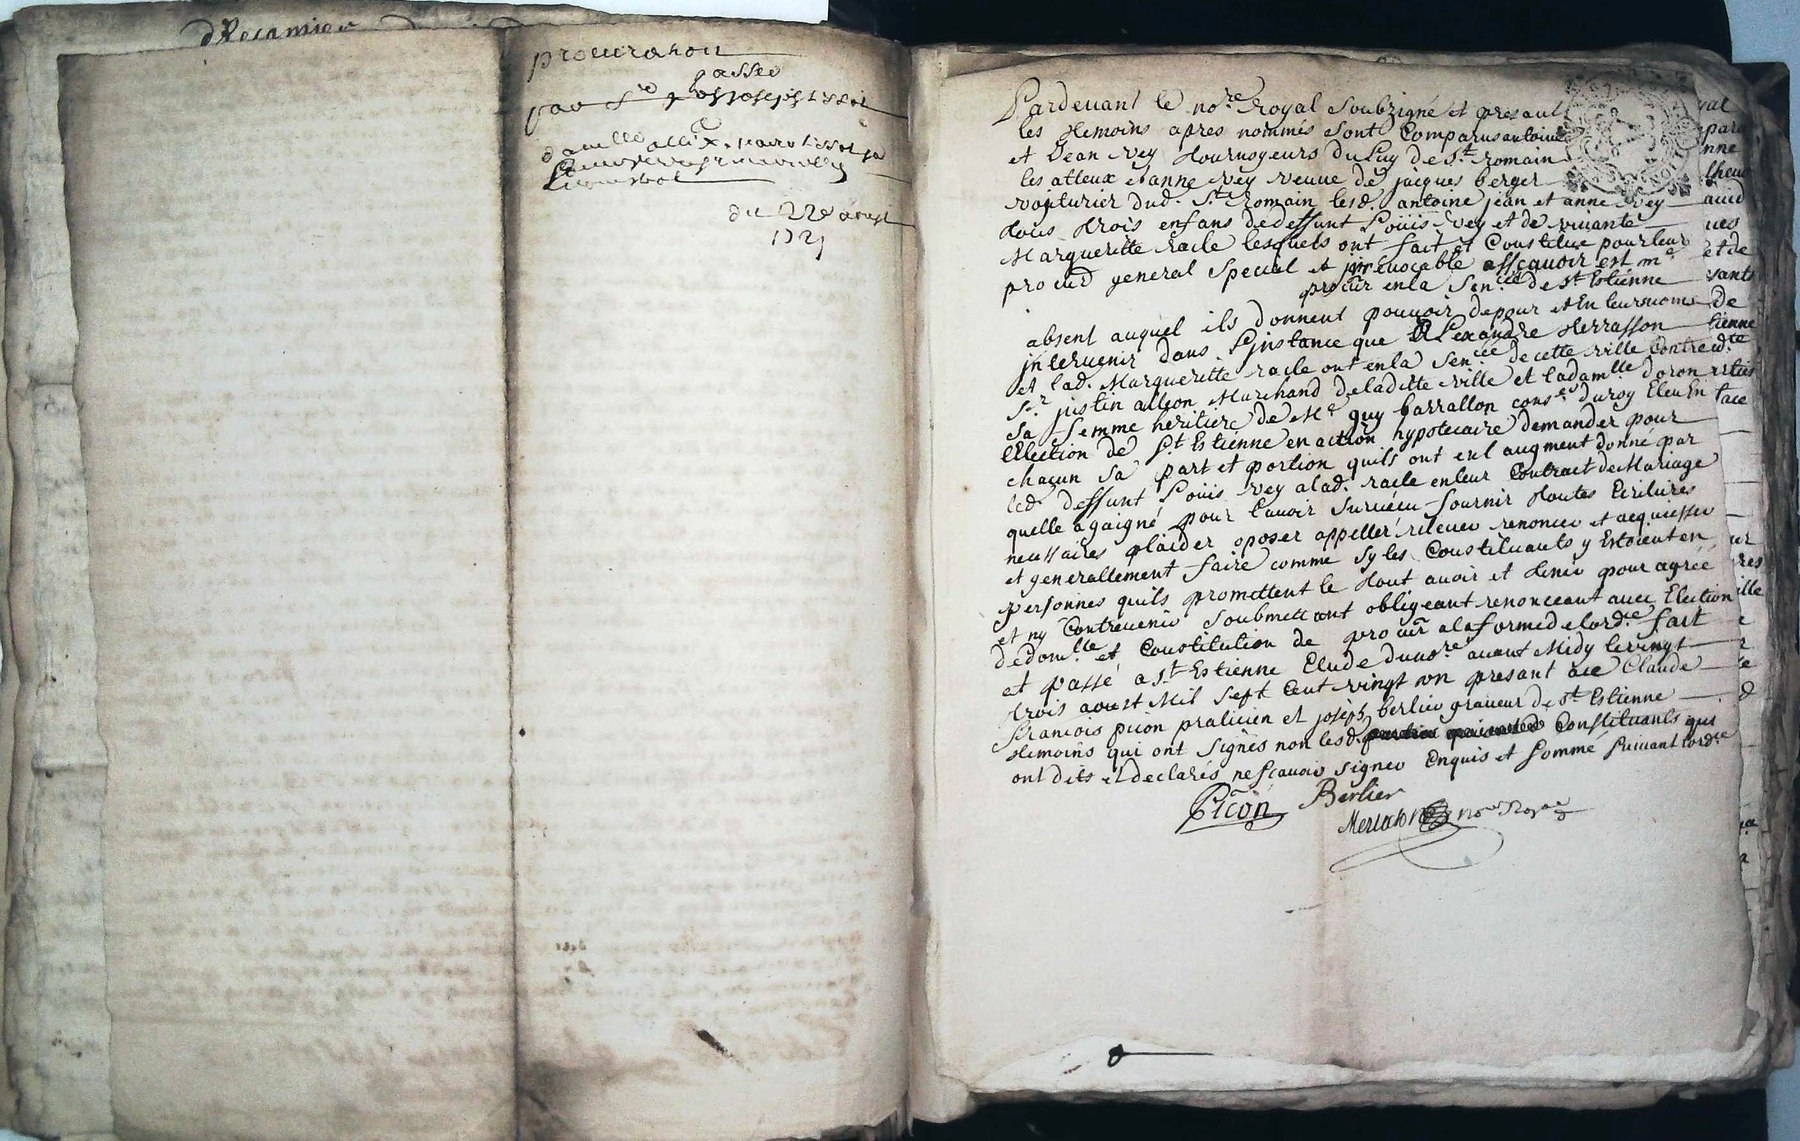 procuration
passee
par Sr
du 22e aoust
1721
Pardevant le nore Royal soubzigné et presant
les temoins apres nommés sont comparus antoine
et Jean Rey tournoyeurs du Puy de St. romain
les atteux et anne Rey veuve de jacques berger
voiturier dud. St. romain lesd. antoine jean et anne Rey
tous trois enfans de deffunt Loüis Rey et de vivante
Margueritte racle lesquels ont fait et constitué pour leur
procur general special et jrrevocable assçavoir est me
procur en la Sencée de St Estienne
absent auquel ils donnent pouvoir de pour et En leurs noms
jntervenir dans l'jnstance que Alexandre terrasson
et lad. Marguerite racle ont en la Sencée de cette ville contre
Sr justin alleon Marchand de laditte ville et la damlle doron
sa femme heritiere de Mr guy barrallon conser du roy Eleu En
l'Election de St Estienne en action hypotecaire demander pour
chacun sa part et portion quils ont en l'augment donné par
led deffunt Loüis Rey a lad. racle en leur contract de Mariage
quelle a gaigné pour l'avoir survécu fournir toutes Ecritures
necessaires plaider oposer appeller relever renoncer et acquiesser
et generallement faire comme sy les constituants y Estoient en
personnes quils promettent le tout avoir et tenir pour agréé
et ny contrevenir soubmettant obligeant renonceant avec Election
de domlle et constitution de procur a la forme de lordce fait
et passé a St Estienne Etude du nore avant Midy le vingt
trois aoust Mil sept cent vingt un presant Me Claude
françois picon praticien et joseph berlier graveur de St Estienne
temoins qui ont signés non lesd. constituants qui
ont dits et declarés ne sçavoir signer Enquis et sommé suivant lordce
Picon Berlier
nore Royal